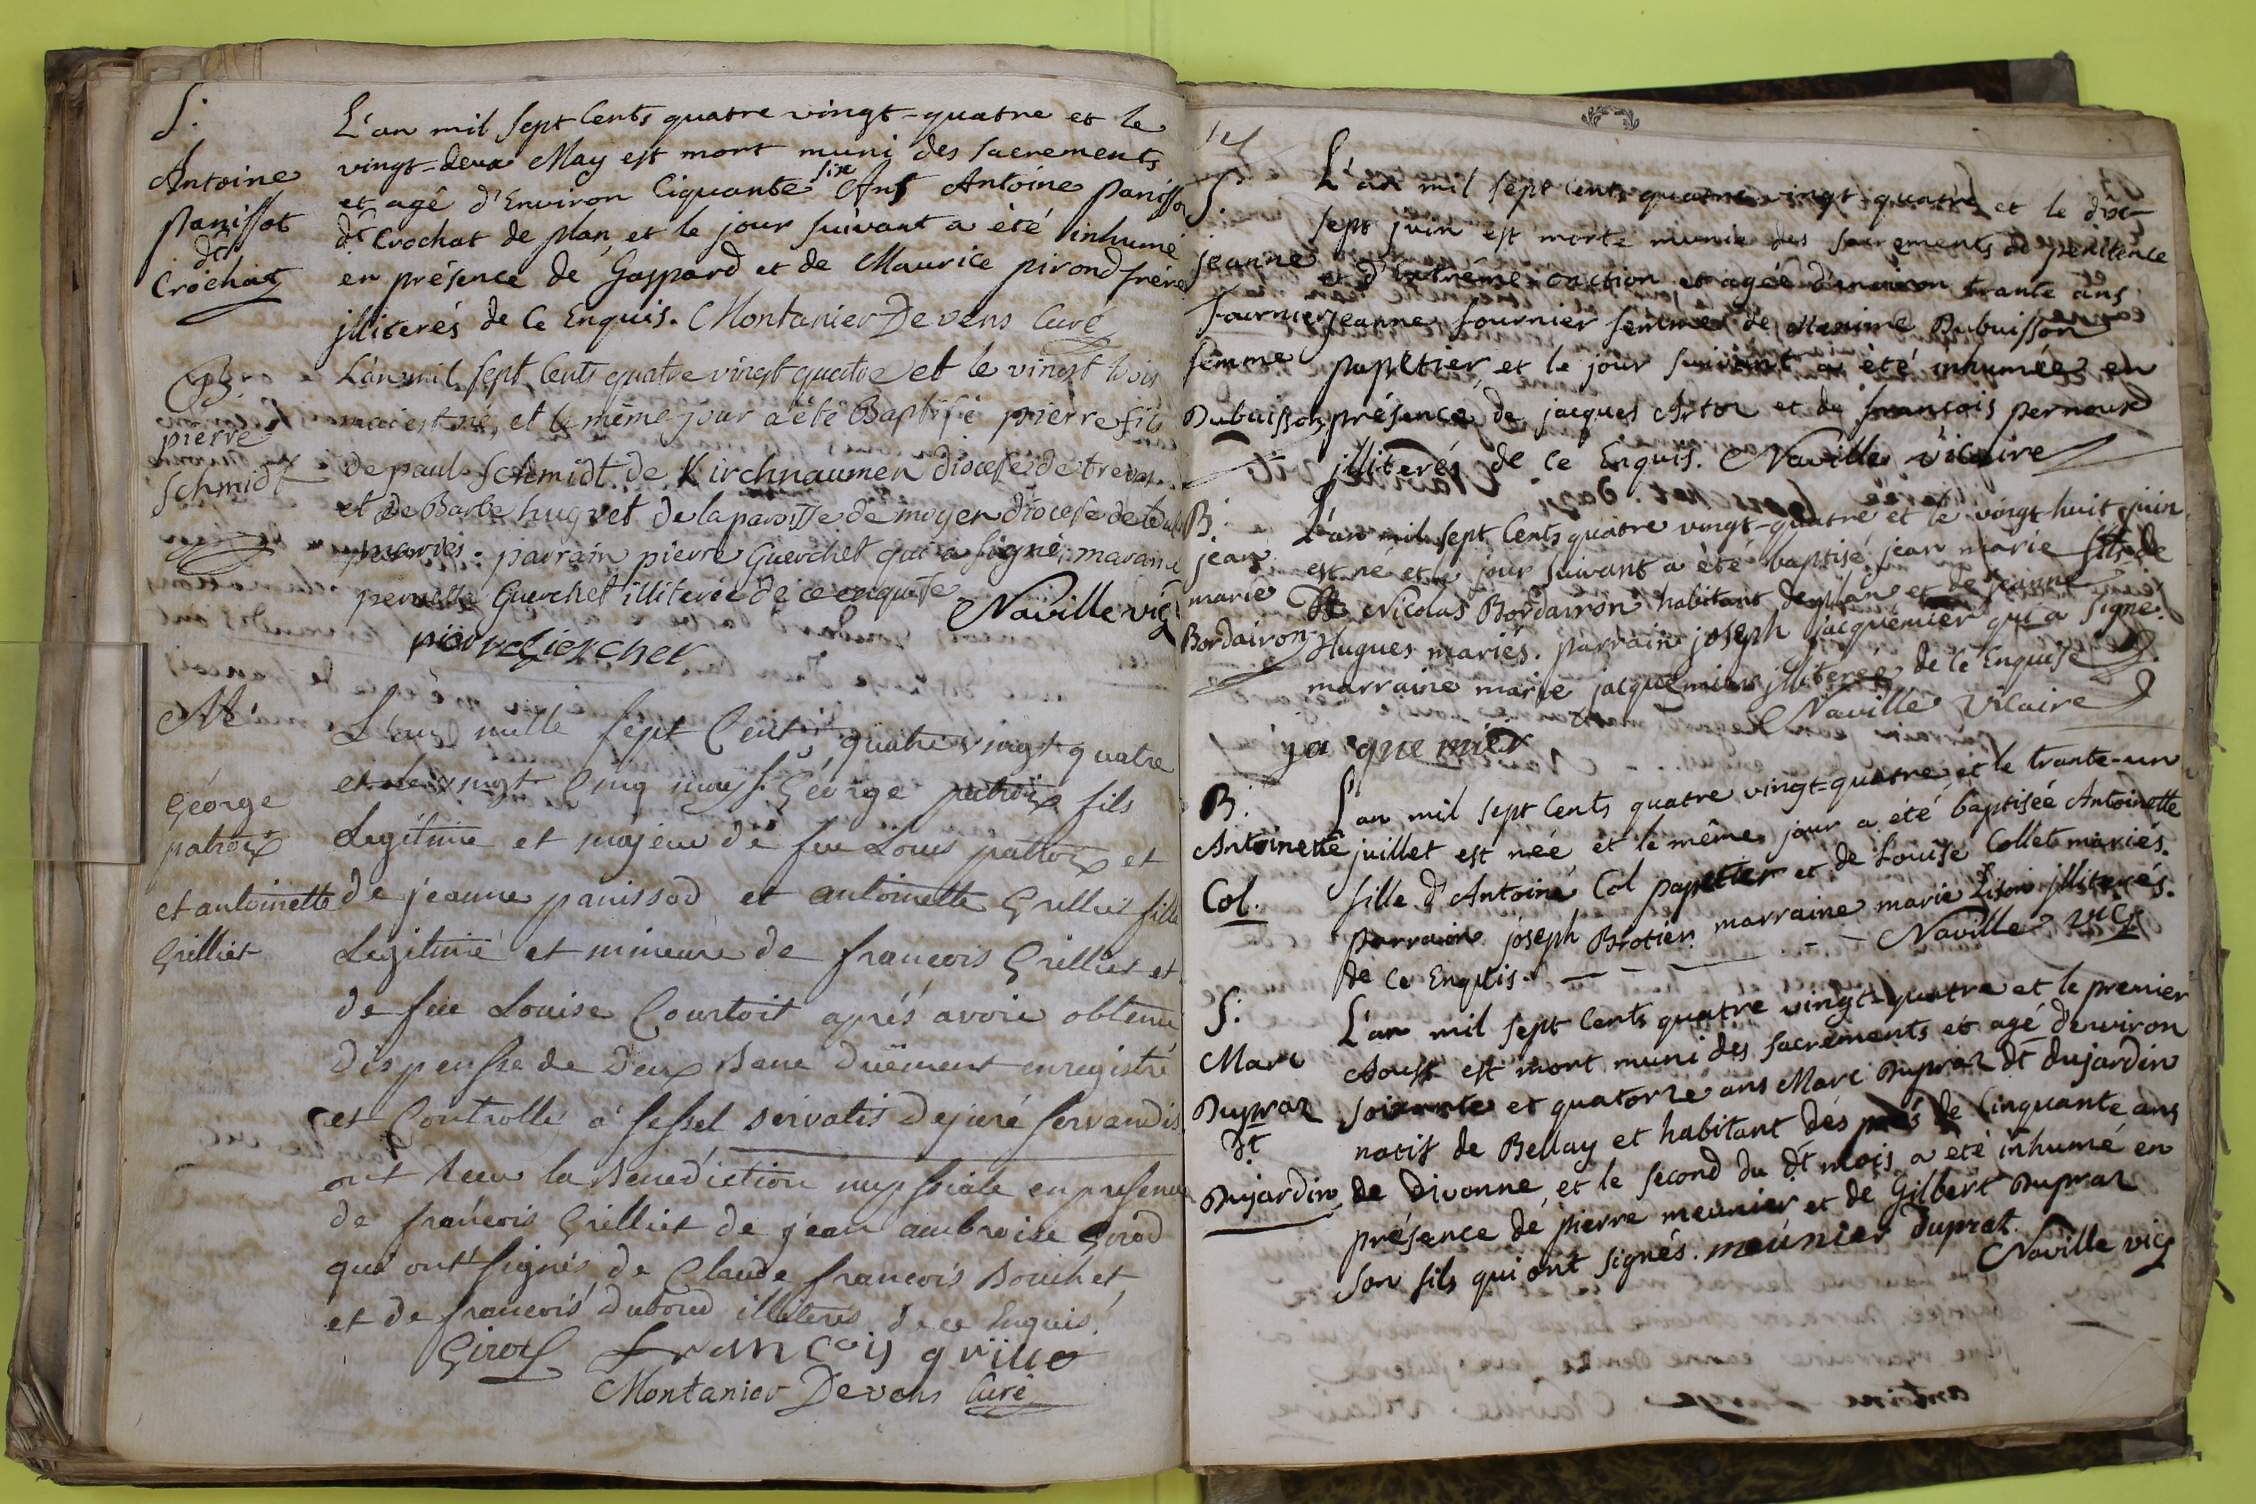 S.
Antoine
panissot
dt
Crochat
L'an mil sept Cents quatre vingt-quatre et le
vingt-deux May est mort muni des sacrements
et agé d'Environ Ciquante six Ans Antoine panisso
dt Crochat de plan, et le jour suivant a été inhumé
en présence de Gaspard et de Maurice pirond frère
jlliterés de Ce Enquis. Montanier Devens Curé
B.
pierre
Schmidt
L'an mil sept Cents quatre vingt quatre et le vingt trois
mai est né, et le même jour a été Baptisé pierre fils
de paul Schmidt de Kirchnaumen diocese de treves
et de Barbe huguet de la paroisse de moyen diocese de
mariés. parrain pierre Guerchet qui a signé, maraine
pernette Guerchet illiterée de ce enquise
Naville vic
pierre Giercher
M.
George
patroix
et antoinette
Grilliet
L'an mille sept Cents quatre vingt quatre
et le vingt Cinq may George patroix fils
Legitime et majeur de feu Louis patroix et
de jeanne panissod et antoinette Grilliet fille
Legitime et mineure de francois Grilliet et
de feue Louise Courtoit aprés avoir obtenu
dispense de Deux Bans duëment enregistré
et Controlle a sessel servatis dejuré servandis
ont recu la Benediction nuptiale en presence
de francois Grilliet de jean ambroise Girod
qui ont signés, de Claude francois Bouchet
et de francois dubourd illiterés de ce Enquis.
Girod francois grilliet
Montanier Devens Curé
S.
jeanne
Fournier
femme
Dubuisson
L'an mil sept Cents quatre vingt-quatre et le dix-
sept juin est morte munie des sacrements de penitence
et d'Extrême onction et agée d'environ trante ans
jeanne fournier femme de Maxime Dubuisson
papetier, et le jour suivant a été inhumée en
présence de jacques Artor et de francois pernoux
jlliterés de Ce Enquis. Naville vicaire
B.
jean
marie
Bordairon
L'an mil sept Cents quatre vingt-quatre et le vingt huit juin
est né et le jour suivant a été baptisé jean marie fils de
Nicolas Bordairon habitant de plan et de jeanne
Hugues mariés. parrain joseph jacquemier qui a signé.
marraine marie jacquemier jlliterée de Ce Enquise
Naville vicaire
jaquemier
B.
Antoinette
Col.
L'an mil sept Cents quatre vingt-quatre et le trante-un
juillet est née et le même jour a été baptisée Antoinette
fille d'Antoine Col papetier et de Louise Collet mariés.
parrain joseph Brotier marraine marie jlliterés.
de Ce Enquis. Naville vic
S.
Marc
Dupraz
dt
Dujardin
L'an mil sept Cents quatre vingt-quatre et le premier
Aoust est mort muni des sacrements et agé d'environ
soixante et quatorze ans Marc Dupraz dt dujardin
natif de Bellay et habitant dés prés de Cinquante ans
de Divonne, et le second du dt mois a été inhumé en
présence de pierre meunier et de Gilbert Dupraz
son fils qui ont signés. meunier duprat
Naville vic